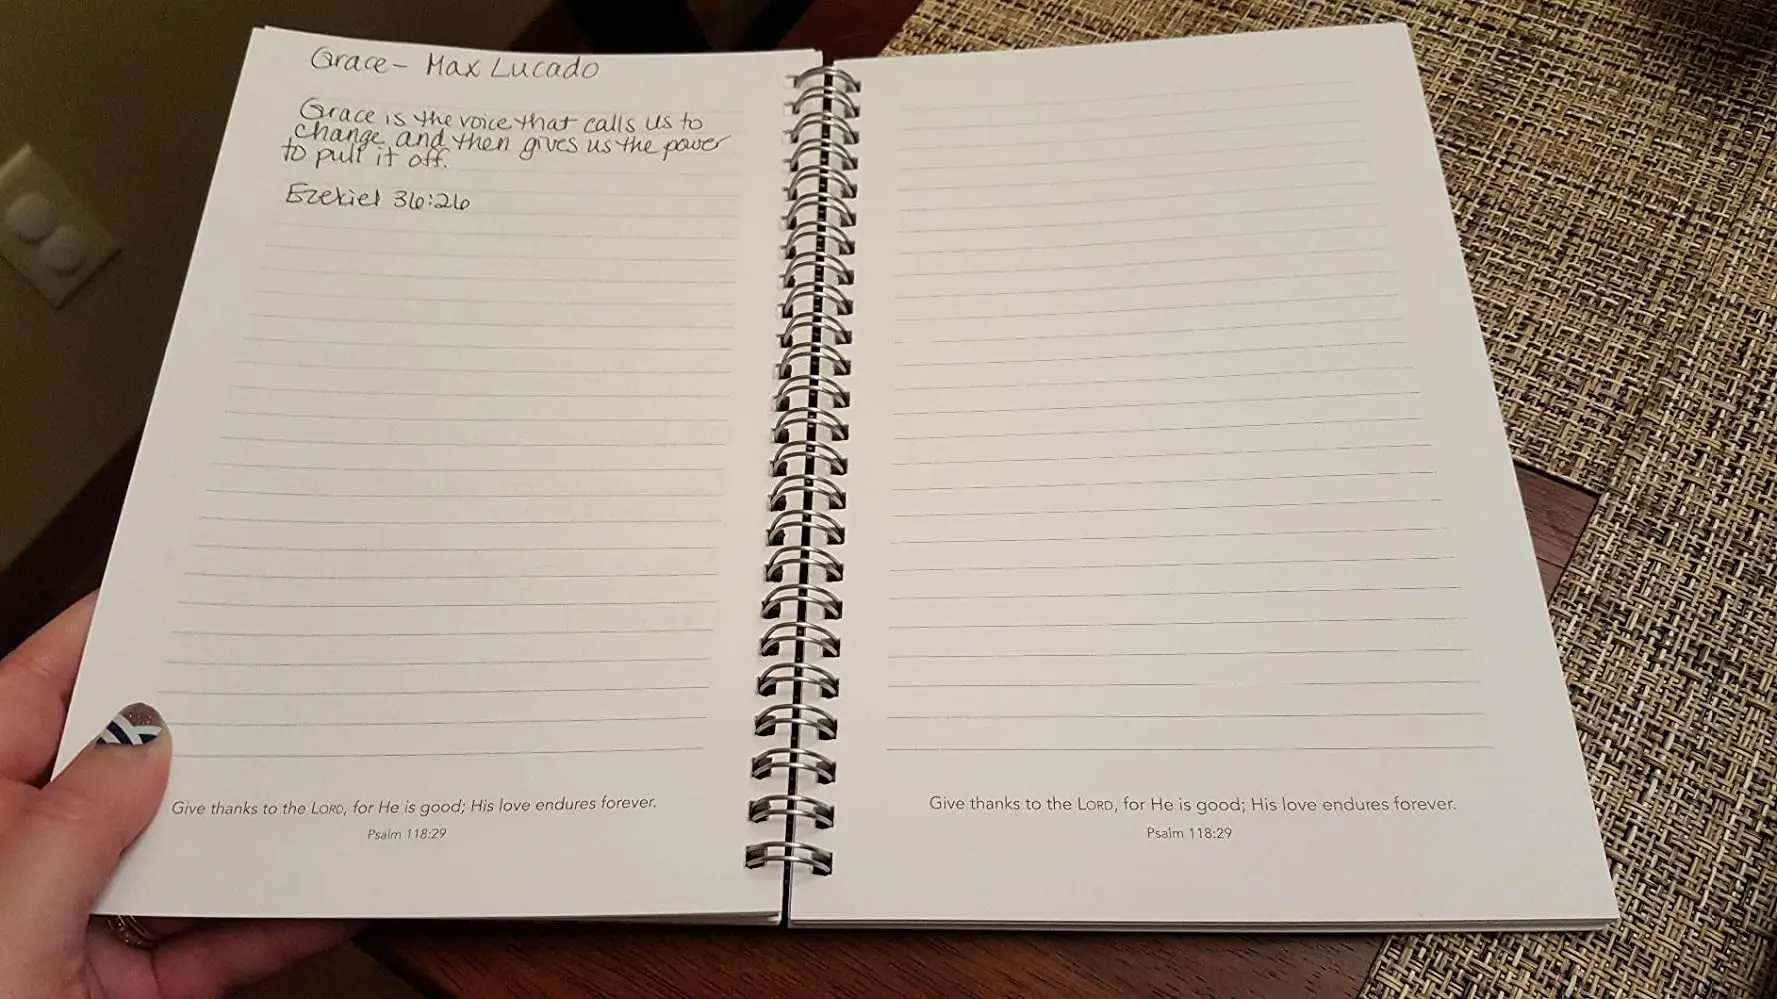 Grace - Max Lucado
Grace is the voice that calls us to
change and then gives us the power
to pull it off.
Ezekiel 36:26
Give thanks to the LORD, for He is good; His love endures forever.
Psalm 118:29
Give thanks to the LORD, for He is good; His love endures forever.
Psalm 118:29